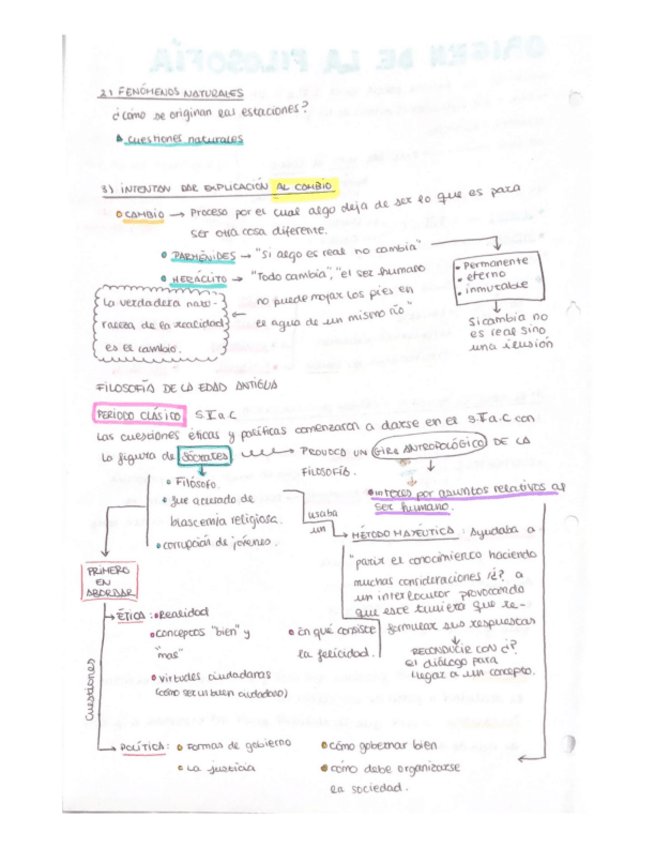 ORIGEN DE LA FILOSOFÍA
2) FENÓMENOS NATURALES
¿cómo se originan las estaciones?
cuestiones naturales
3) INTENTAN DAR EXPLICACIÓN AL CAMBIO
CAMBIO → Proceso por el cual algo deja de ser lo que es para
ser otra cosa diferente.
PARMÉNIDES → "Si algo es real no cambia"
• Permanente
• eterno
• inmutable
HERÁCLITO → "Todo cambia", "el ser humano
no puede mojar los pies en
el agua de un mismo río"
La verdadera natu-
raleza de la realidad
es el cambio.
Si cambia no
es real sino
una ilusión
FILOSOFÍA DE LA EDAD ANTIGUA
PERIODO CLÁSICO S V a C
Las cuestiones éticas y políticas comenzaron a darse en el s.V a.C con
la figura de Sócrates → PROVOCA UN GIRO ANTROPOLÓGICO DE LA
FILOSOFÍA.
• Filósofo.
• Fue acusado de
blascemia religiosa.
• corrupción de jóvenes.
• interés por asuntos relativos al
ser humano.
usaba
un
MÉTODO MAYÉUTICA: Ayudaba a
"parir el conocimiento haciendo
muchas consideraciones /¿? a
un interlocutor provocando
que este tuviera que re-
formular sus respuestas
RECONDUCIR CON ¿?
el diálogo para
lugar a un concepto.
PRIMERO
EN
ABORDAR
Cuestiones
ÉTICA: • Realidad
• conceptos "bien" y
"mal"
• virtudes ciudadanas
(cómo ser un buen ciudadano)
• En qué consiste
la felicidad.
POLÍTICA: • Formas de gobierno
• La justicia
• cómo gobernar bien
• cómo debe organizarse
la sociedad.